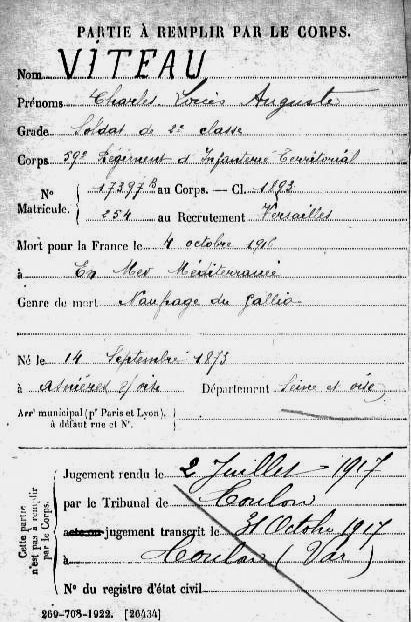 PARTIE À REMPLIR PAR LE CORPS.
Nom VITEAU
Prénoms Charles Louis Auguste
Grade Soldat de 2e classe
Corps 59e Régiment d'Infanterie Territorial
N° Matricule. { 17397B au Corps. — Cl. 1893
254 au Recrutement Versailles
Mort pour la France le 4 octobre 1916
à En Mer Méditerranée
Genre de mort Naufrage du Gallia
Né le 14 Septembre 1873
à Asnières s/oise Département Seine et oise
Arr' municipal (p' Paris et Lyon),
à défaut rue et N°.
Cette partie n'est pas à remplir par le Corps.
Jugement rendu le 2 Juillet 1917
par le Tribunal de Toulon
acte ou jugement transcrit le 31 Octobre 1917
à Toulon (Var)
N° du registre d'état civil
269-708-1922. [26434]